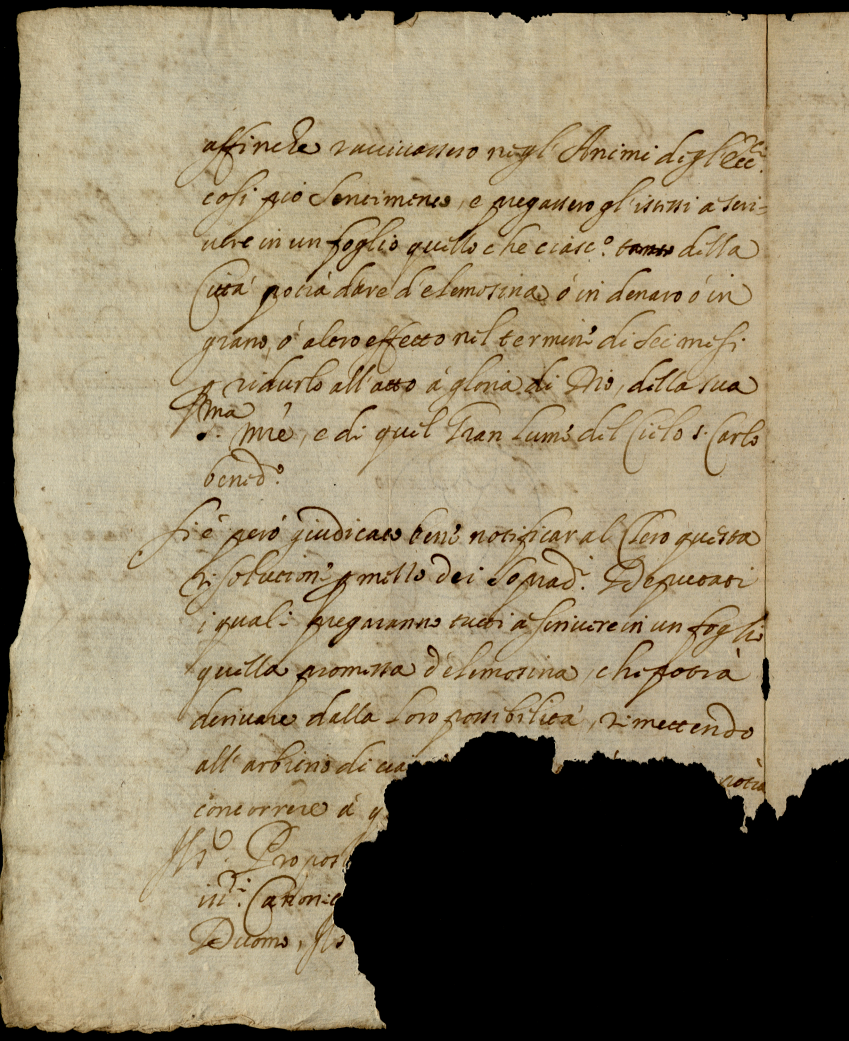 affinche ravvivassero negl' Animi degl' Ecc.ci
cosi pio sentimento, e pregassero gl'istessi a scri=
vere in un foglio quello che ciasc.o della
Città potrà dare d'elemosina ò in denaro ò in
grano, ò altro effetto nel termine di sei mesi
ridurlo all'atto à gloria di Dio, della sua
S.ma Mre, e di quel Gran Lume del Cielo S. Carlo
bened.o
Si è però giudicato bene notificar al Clero questa
risolutione p mezzo dei Soprad.i Deputati
i quali pregaranno tutti a scrivere in un foglio
quella promessa d'elemosina, che potrà
derivare dalla loro possibilità, rimettendo
all'arbitrio di potrà
concorrere à
Propos
Canonic
Duomo,